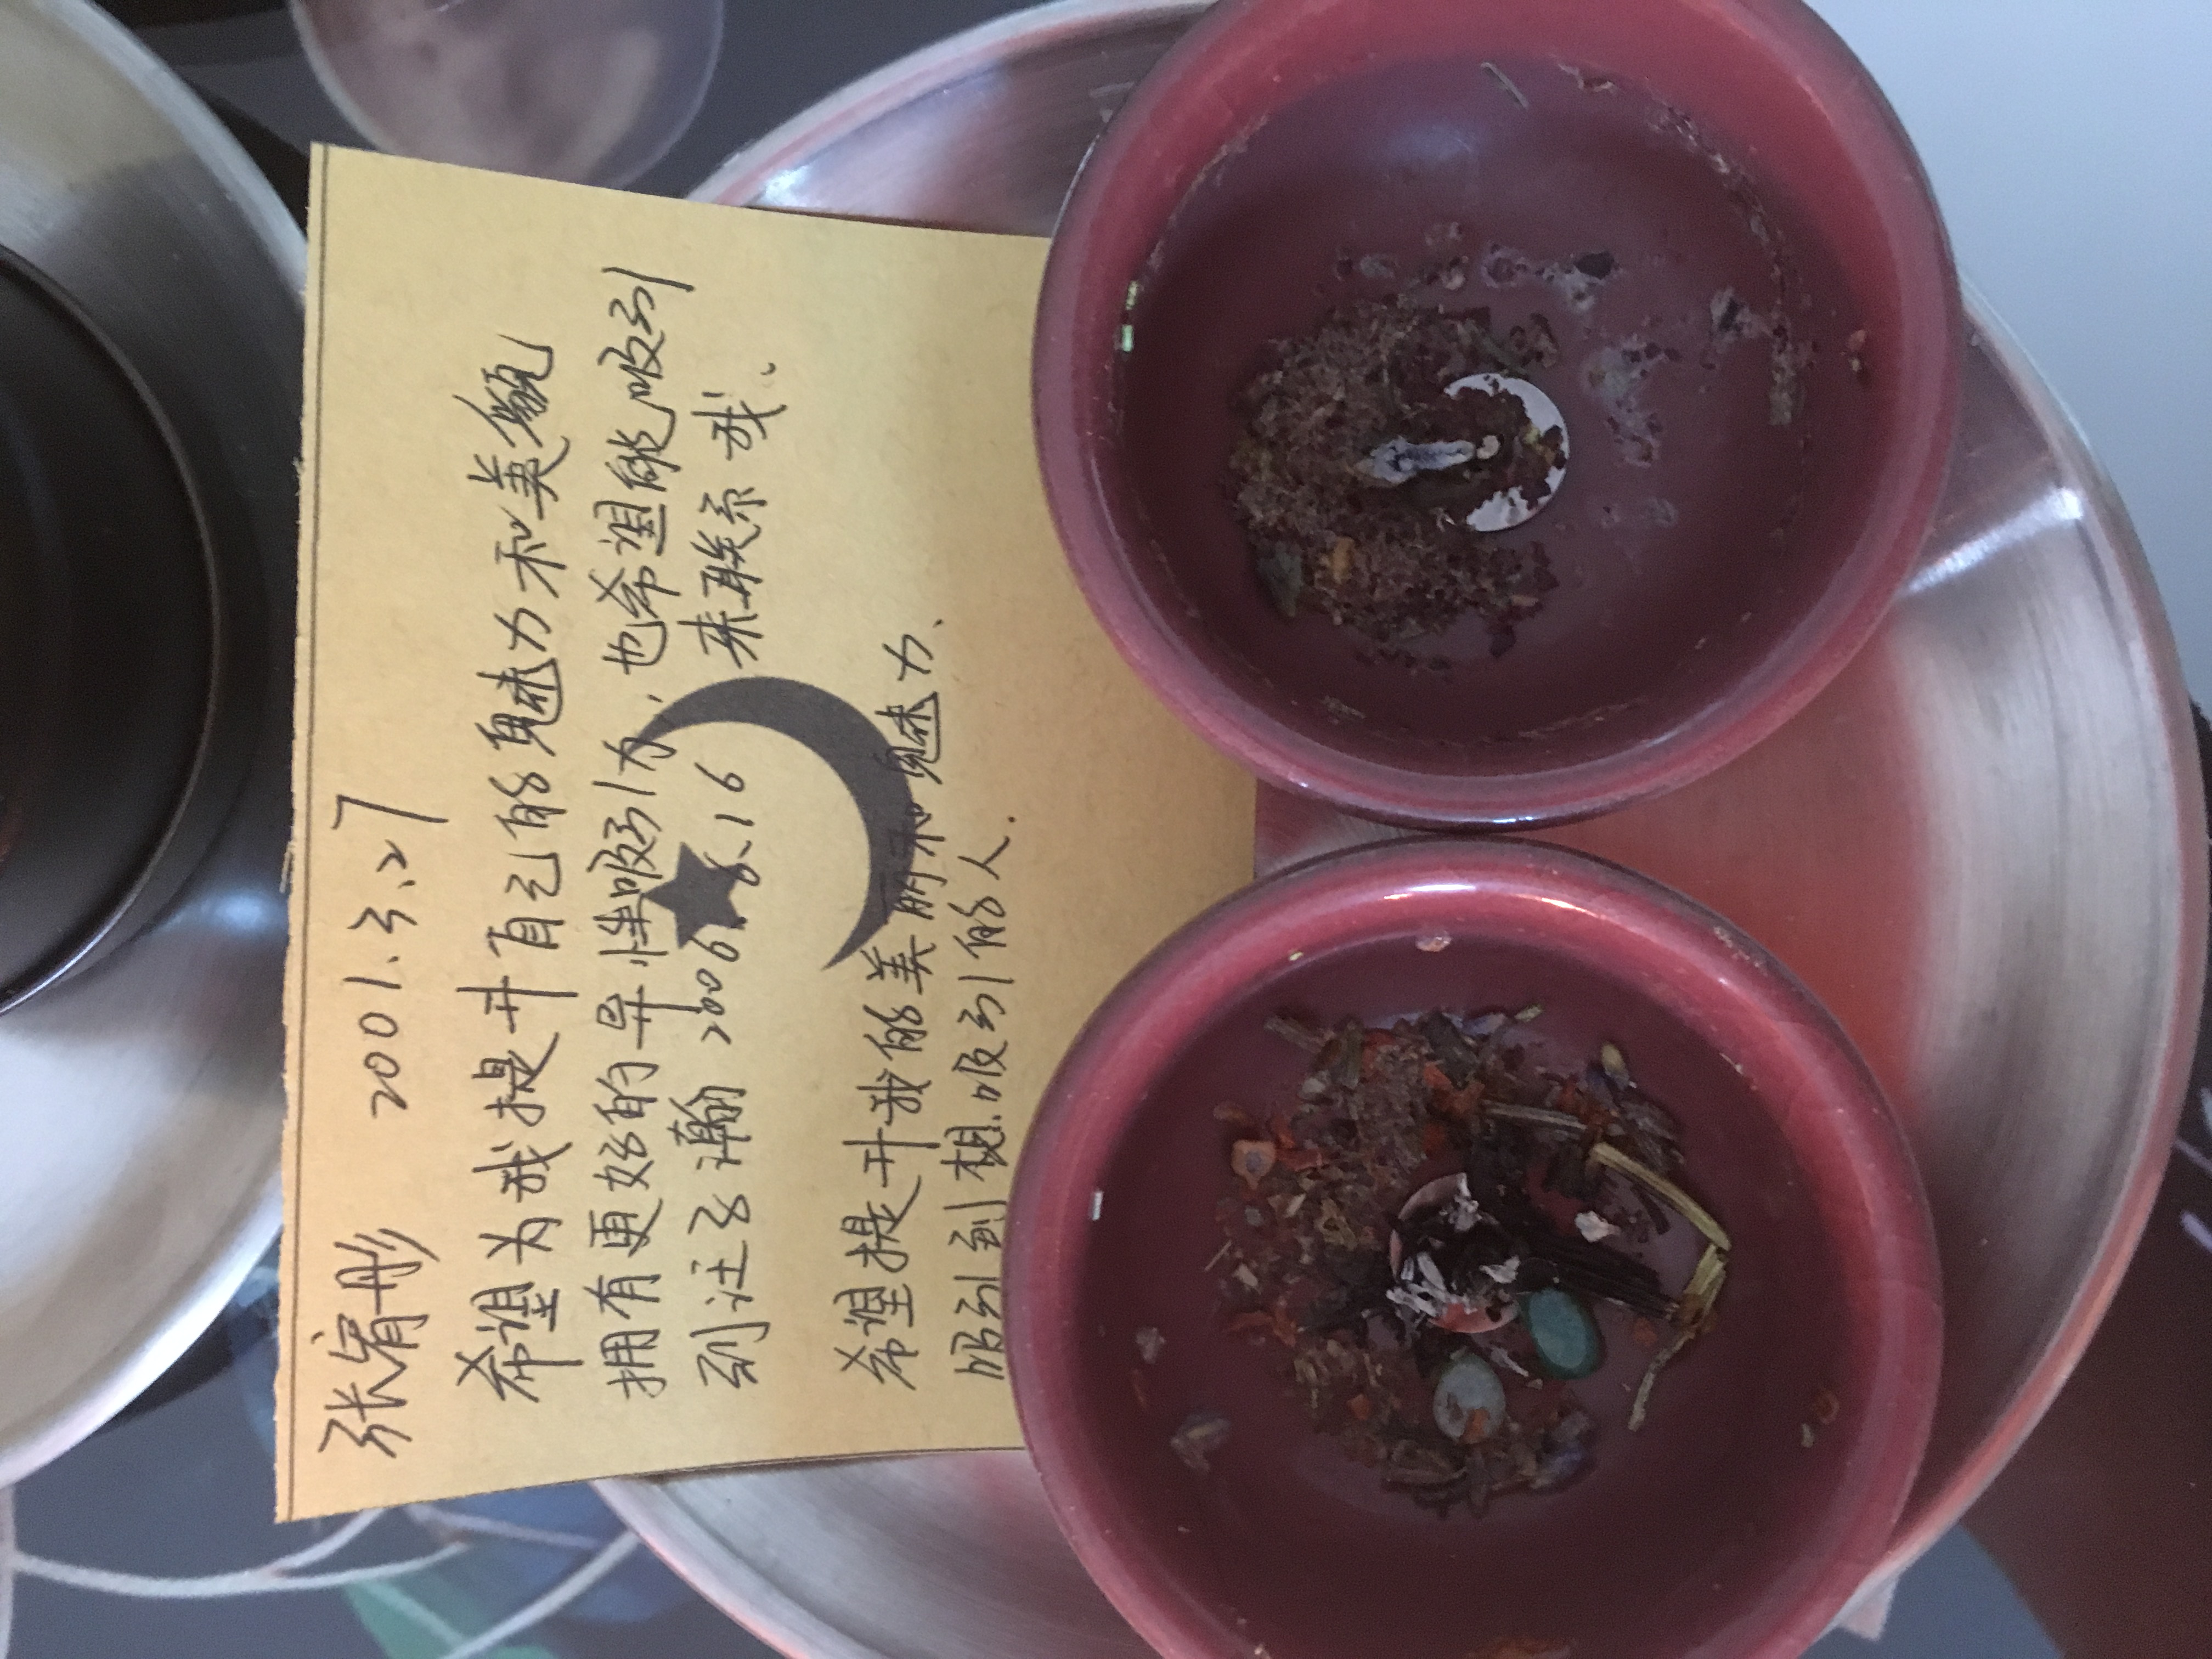 张宥彤 2001.3.27
希望为我提升自己的魅力和美貌
拥有更好的异性吸引力,也希望能吸引
到汪子瀚 2006.6.16 来联系我、
希望提升我的美丽和魅力、
吸引到想吸引的人.